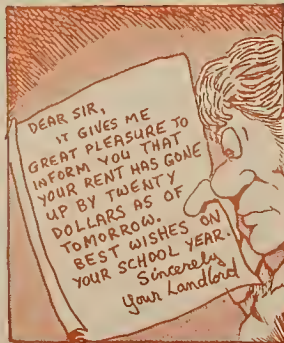 DEAR SIR,
IT GIVES ME
GREAT PLEASURE TO
INFORM YOU THAT
YOUR RENT HAS GONE
UP BY TWENTY
DOLLARS AS OF
TOMORROW.
BEST WISHES ON
YOUR SCHOOL YEAR.
Sincerely
Your Landlord